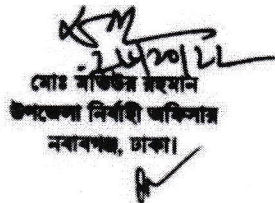 মোঃ মতিউর রহমান
উপজেলা নির্বাহী অফিসার
নবাবগঞ্জ, ঢাকা।